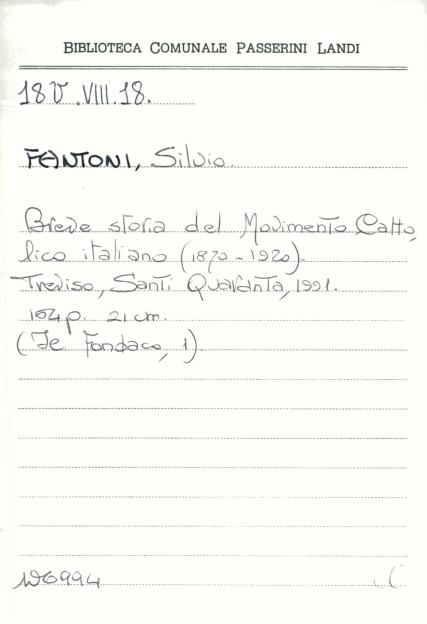 BIBLIOTECA COMUNALE PASSERINI LANDI
18 V .VIII.18.
FANTONI, Silvio.
Breve storia del Movimento Catto
lico italiano (1870-1920).
Treviso, Santi Quaranta, 1991.
164 p. 21 cm.
(Il Fondaco, 1)